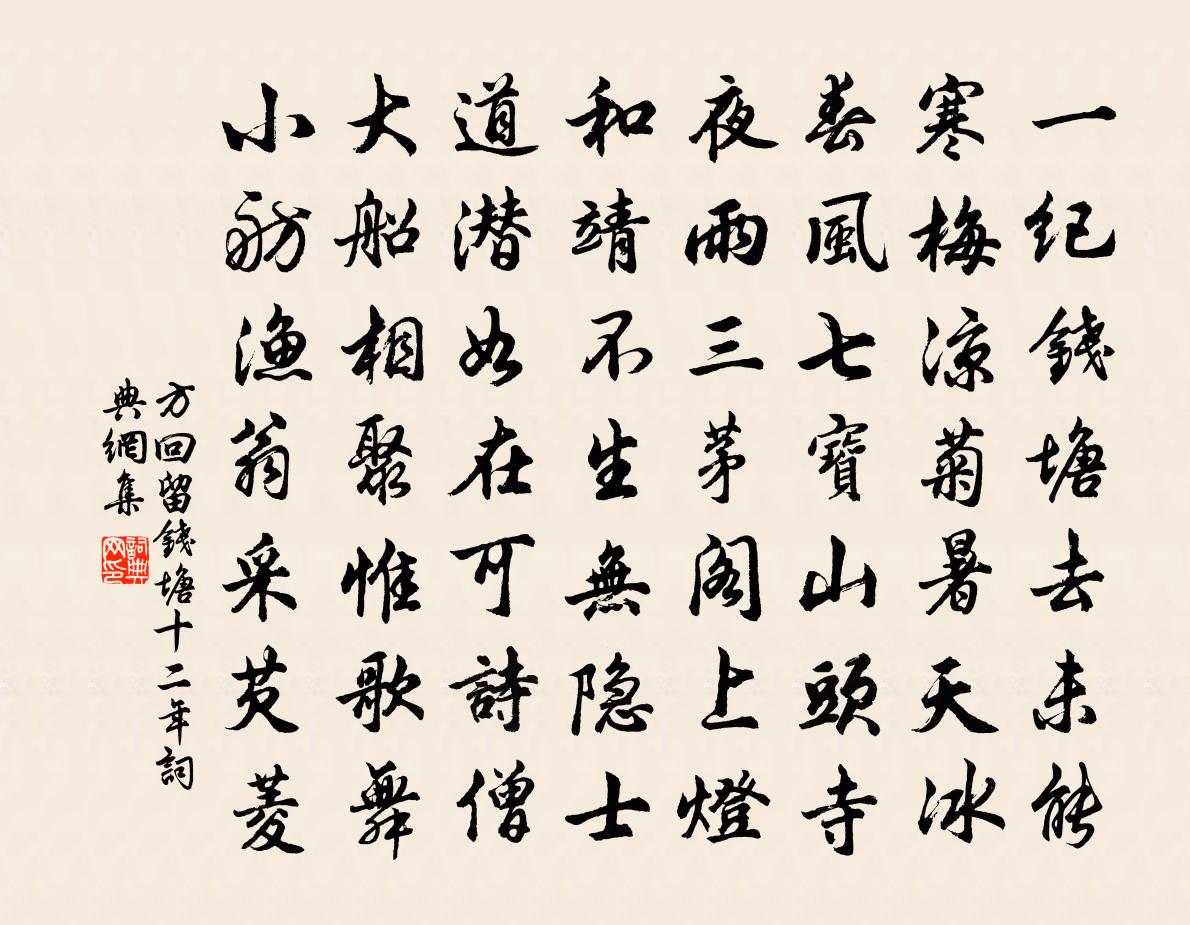 一紀錢塘去未能
寒梅涼菊暑天冰
春風七寶山頭寺
夜雨三茅閣上燈
和靖不生無隐士
道潜如在可詩僧
大船相聚惟歌舞
小舫漁翁采芡菱
方回留錢塘十二年詞
典網集
詞典
网印